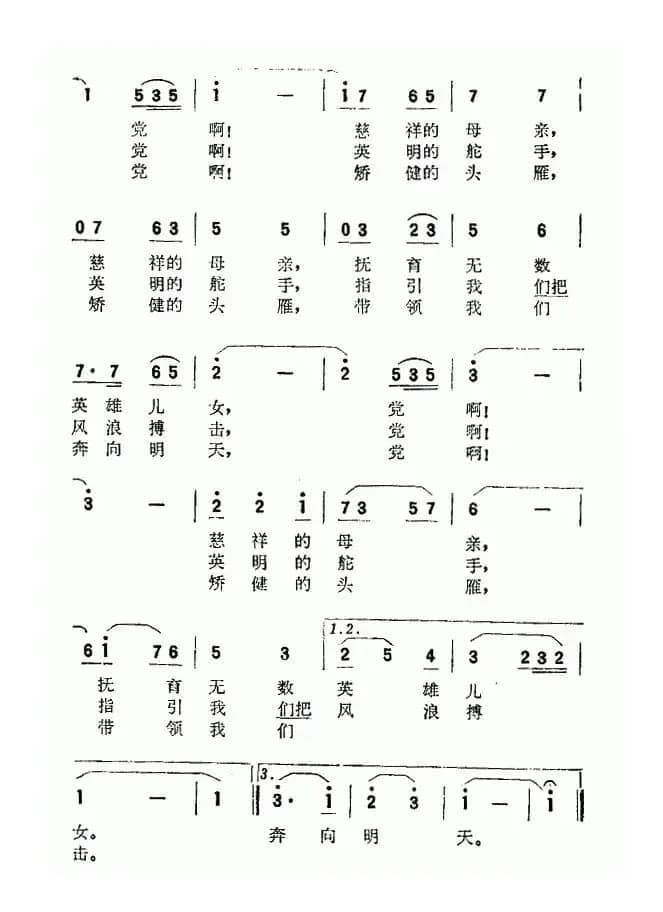 1 535 | i — | i7 65 | 7 7 |
党 啊! 慈 祥的 母 亲,
党 啊! 英 明的 舵 手,
党 啊! 矫 健的 头 雁,
07 63 | 5 5 | 03 23 | 5 6 |
慈 祥的 母 亲, 抚 育 无 数
英 明的 舵 手, 指 引 我 们把
矫 健的 头 雁, 带 领 我 们
7· 7 65 | 2 — | 2 535 | 3 — |
英 雄 儿 女, 党 啊!
风 浪 搏 击, 党 啊!
奔 向 明 天, 党 啊!
3 — | 2 2 i | 73 57 | 6 — |
慈 祥 的 母 亲,
英 明 的 舵 手,
矫 健 的 头 雁,
1.2.
6i 76 | 5 3 | 2 5 4 | 3 232 |
抚 育 无 数 英 雄 儿
指 引 我 们把 风 浪 搏
带 领 我 们
3.
1 — | 1 ‖ 3· i | 2 3 | i — | i ‖
女。 奔 向 明 天。
击。